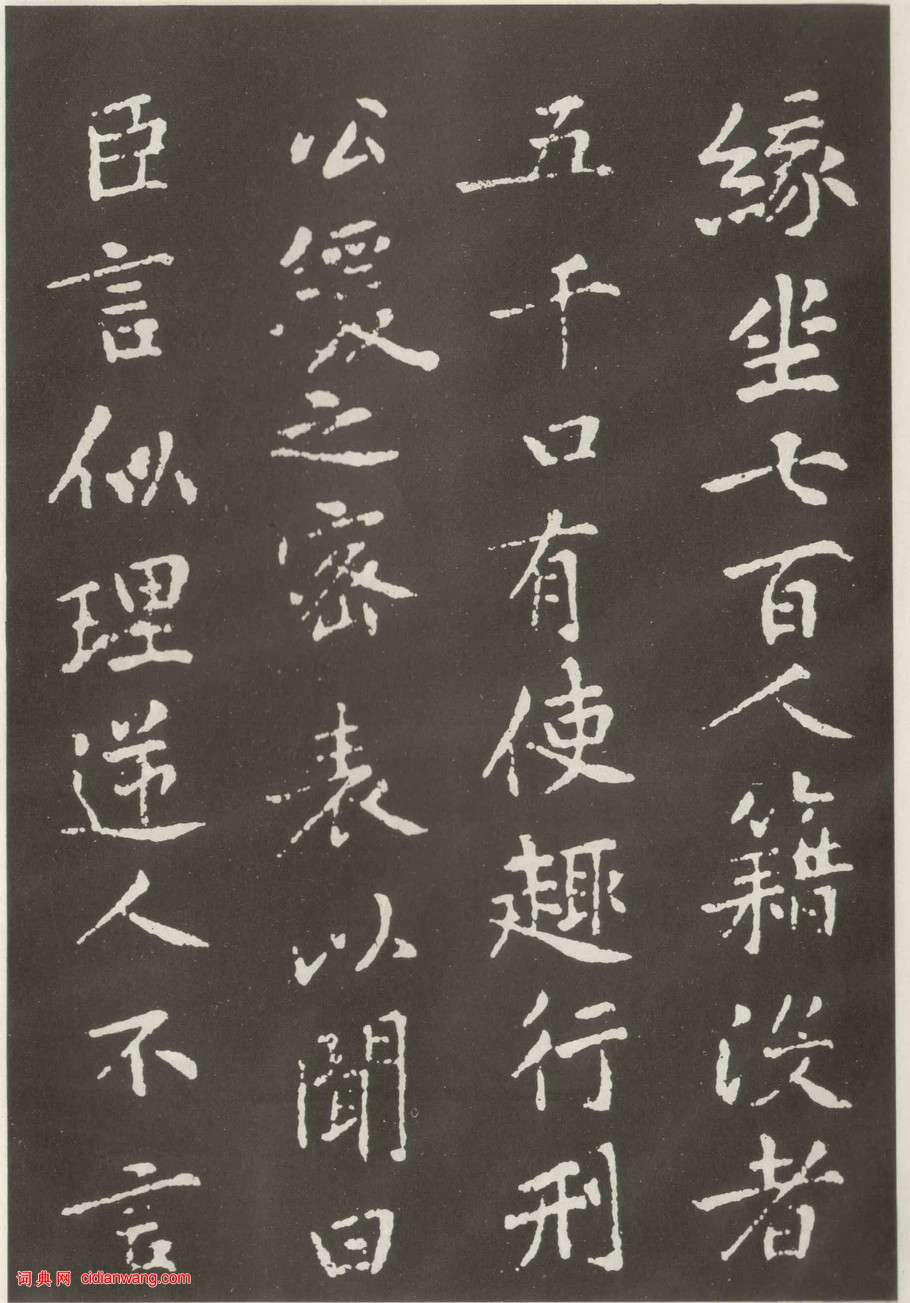 緣坐七百人籍没者
五千口有使趣行刑
公緩之密表以聞曰
臣言似理逆人不言
词典网 cidianwang.com